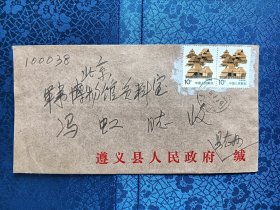 100038
北京
军事博物馆资料室
冯虹 收
遵义县人民政府 缄
10分
中国人民邮政
10分
中国人民邮政